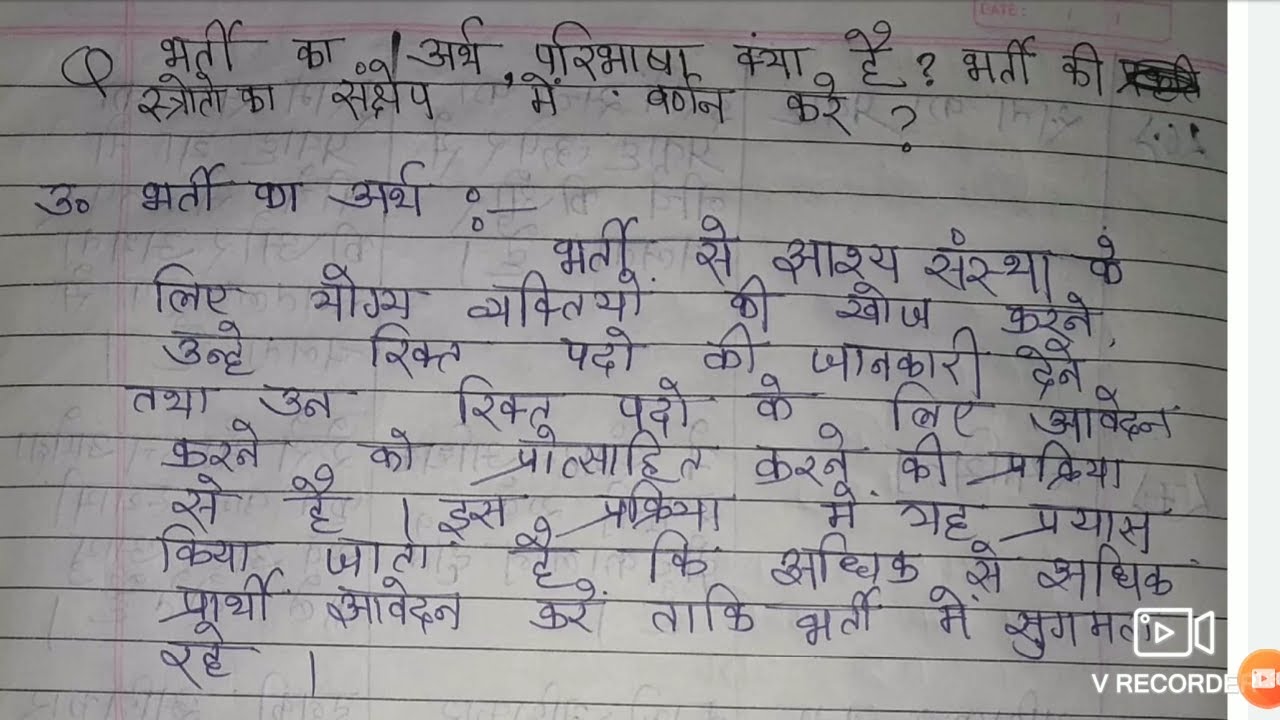 DATE:
Q भर्ती का अर्थ परिभाषा क्या है ? भर्ती की
स्त्रोतो का संक्षेप में वर्णन करे ?
उ० भर्ती का अर्थ :-
भर्ती से आश्य संस्था के
लिए योग्य व्यक्तियों की खोज करने,
उन्हे रिक्त पदो की जानकारी देने
तथा उन रिक्त पदो के लिए आवेदन
करने को प्रोत्साहित करने की प्रक्रिया
से है । इस प्रक्रिया में यह प्रयास
किया जाता है कि अधिक से अधिक
प्रार्थी आवेदन करें ताकि भर्ती में सुगमता
रहे ।
V RECORDER